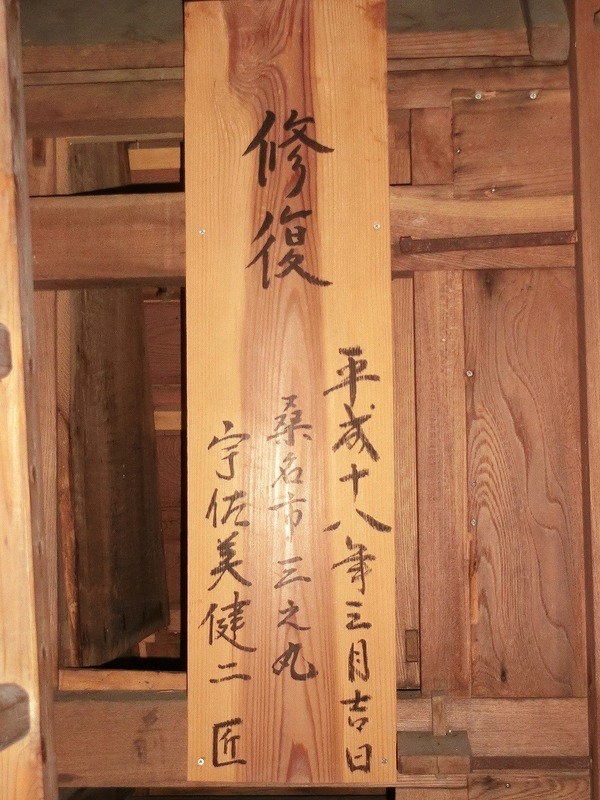 修復
平成十八年三月吉日
桑名市三之丸
宇佐美健二 匠